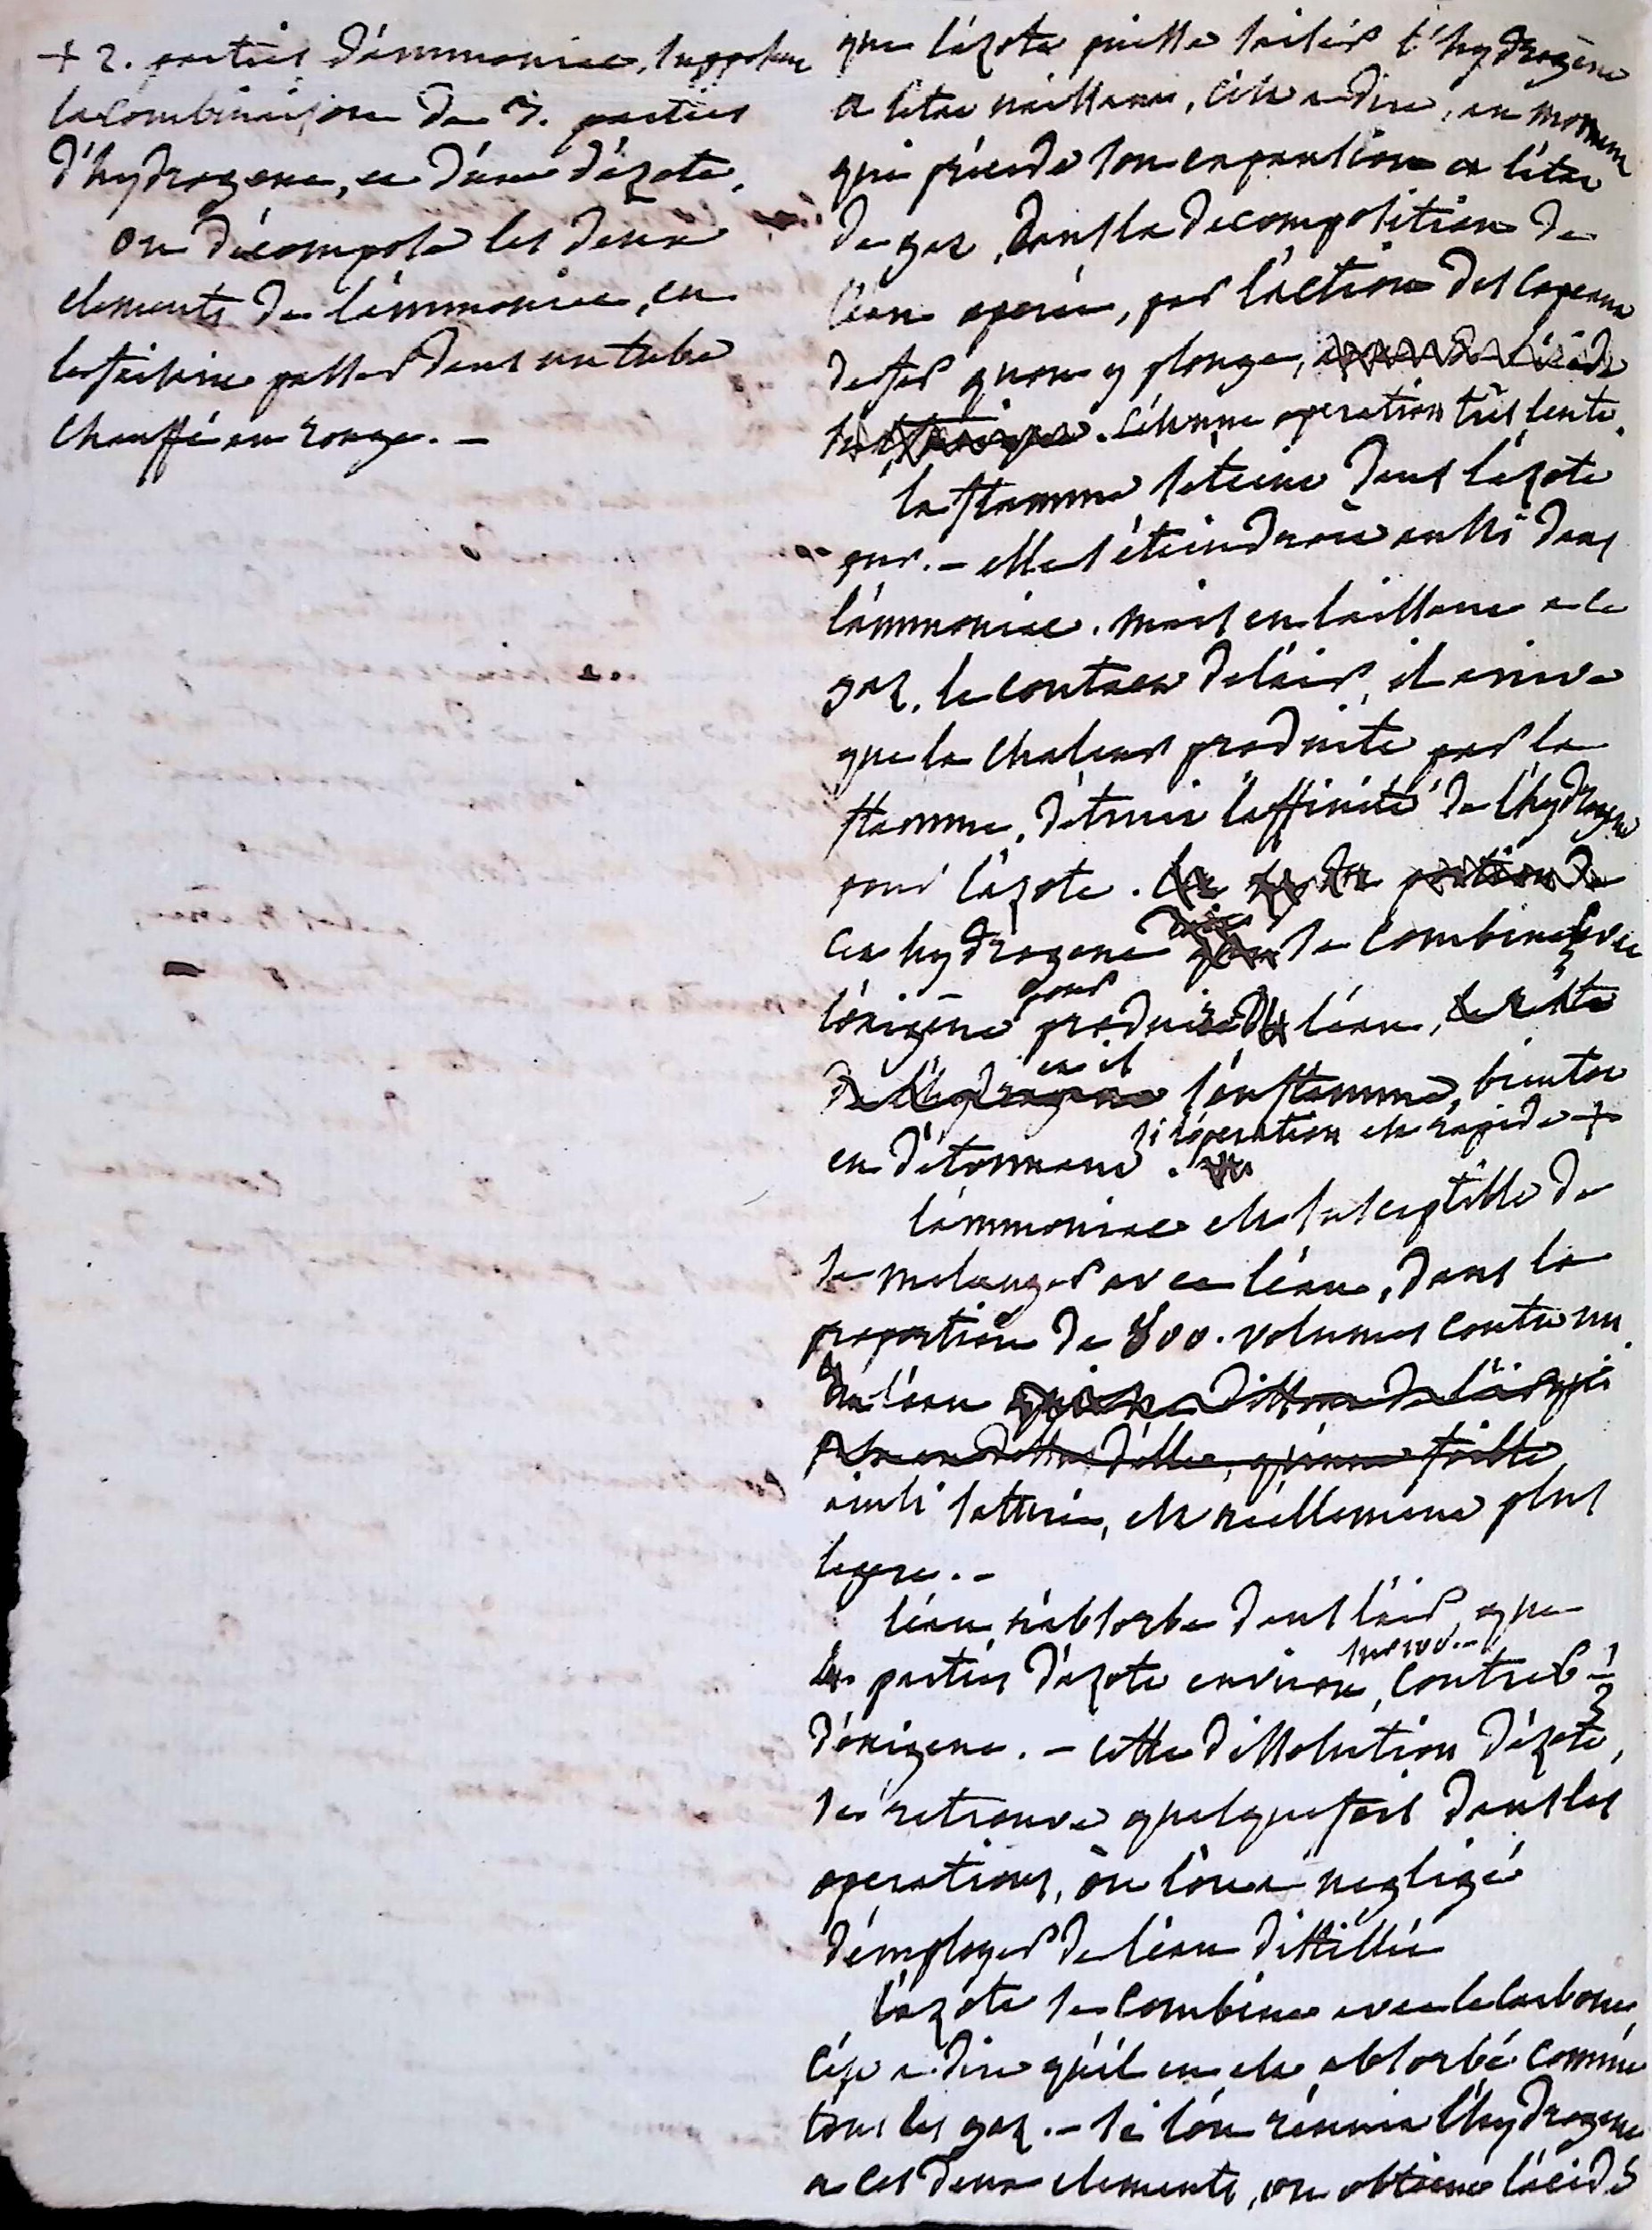 + 2. parties d'ammoniac, suppose
la combinaison de 3. parties
d'hydrogene, et d'une d'azote.
on décompose les deux
elements de l'ammoniac, en
les faisant passer dans un tube
chauffé au rouge. –
que l'azote puisse saisir l'hydrogène
a l'etat naissant, c'est a dire, au moment
qui précede son expansion a l'état
de gaz, dans la decomposition de
l'eau operée, par l'action des
de fer qu'on y plonge,
c'est une operation très lente.
la flamme s'eteint dans l'azote
pur. – elle s'éteindroit aussi dans
l'ammoniac. mais en laissant a ce
gaz, le contact de l'air, il arrive
que la chaleur produite par la
flamme, détruit l'affinité de l'hydrogene
pour l'azote. portion de
cet hydrogene se combine avec
l'oxigene pour produire de l'eau, le reste
de l'hydrogene et il s'enflamme, bientot
en détonnant. si l'operation est rapide +
l'ammoniac est susceptible de
se melanger avec l'eau, dans la
proportion de 800. volumes contre un.
de l'eau
ainsi saturée, est réellement plus
legere. –
l'eau n'absorbe dans l'air, que
4. parties d'azote environ, sur 100. – contre 6 1/2
d'oxigene. – cette dissolution d'azote,
se retrouve quelquefois dans les
operations, ou l'on a negligé
d'employer de l'eau distillée
l'azote se combine avec le carbone,
c'est a dire qu'il en est absorbé comme
tous les gaz. – si l'on réunit l'hydrogene
a ces deux elements, on obtient l'acide